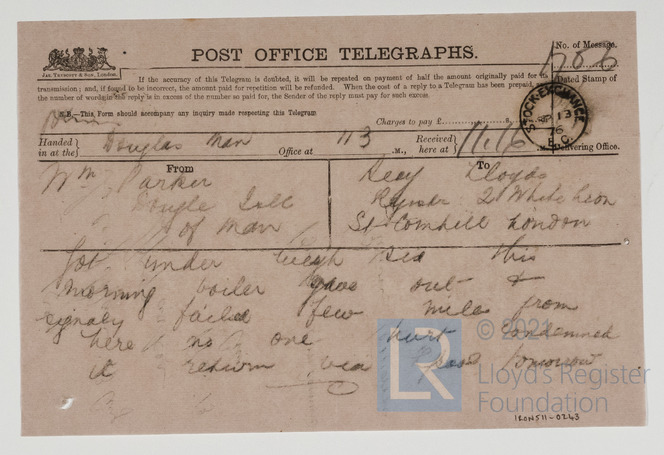 POST OFFICE TELEGRAPHS.
JAS. TRUSCOTT & SON, London.
No. of Message.
1706
If the accuracy of this Telegram is doubted, it will be repeated on payment of half the amount originally paid for its
transmission; and, if found to be incorrect, the amount paid for repetition will be refunded. When the cost of a reply to a Telegram has been prepaid,
the number of words in the reply is in excess of the number so paid for, the Sender of the reply must pay for such excess.
Dated Stamp of
N.B.—This Form should accompany any inquiry made respecting this Telegram
Charges to pay £ s.
STOCK-EXCHANGE
SP 13
76
E.C.
Handed in at the Douglas Man Office at 11 3 .M., Received here at 11.16
Delivering Office.
From
Wm Parker
Isle
of Man
To
Secy Lloyds
2 White Lion
St Cornhill London
Got under weigh this
morning boiler gave out &
failed few miles from
here no one hurt condemned
it return tomorrow
© 2021
LR
Lloyd's Register
Foundation
IRON511-0243